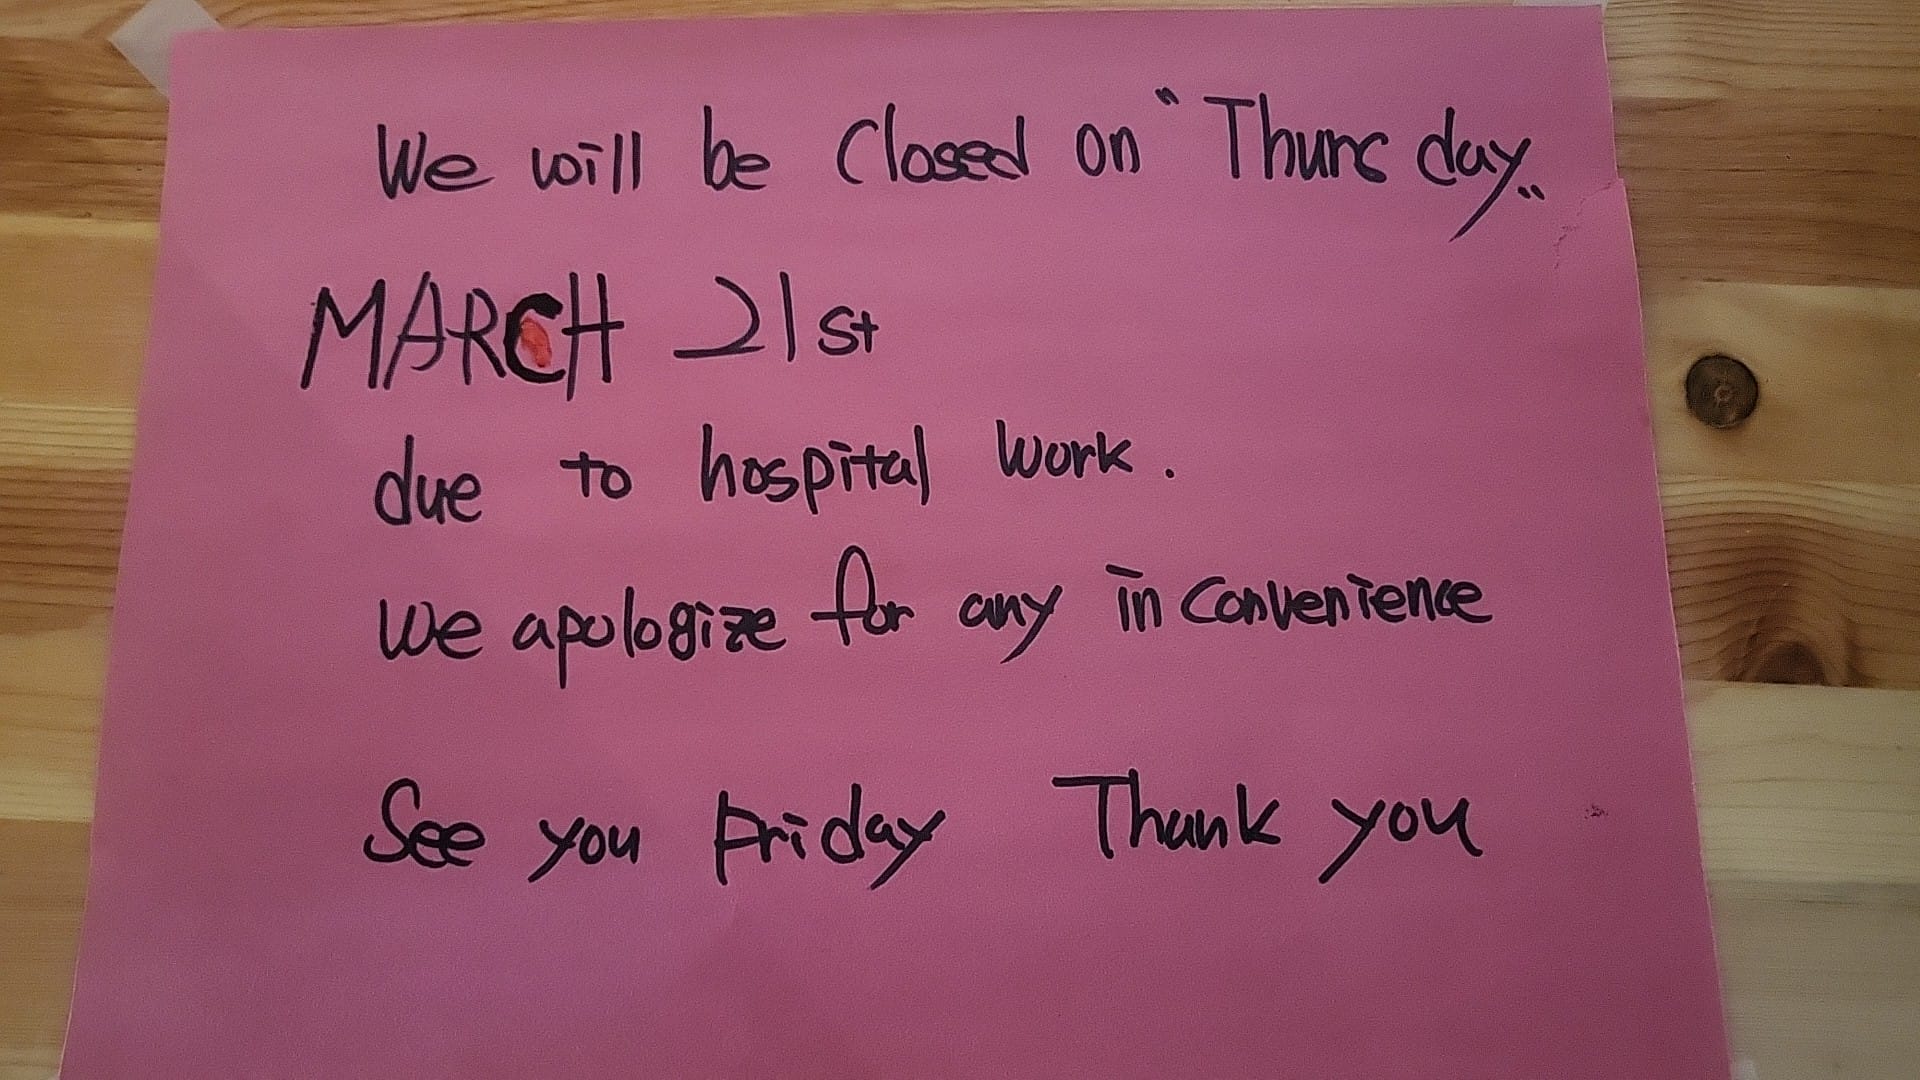 We will be Closed on "Thursday"
MARCH 21st
due to hospital work.
We apologize for any inconvenience
See you Friday Thank you